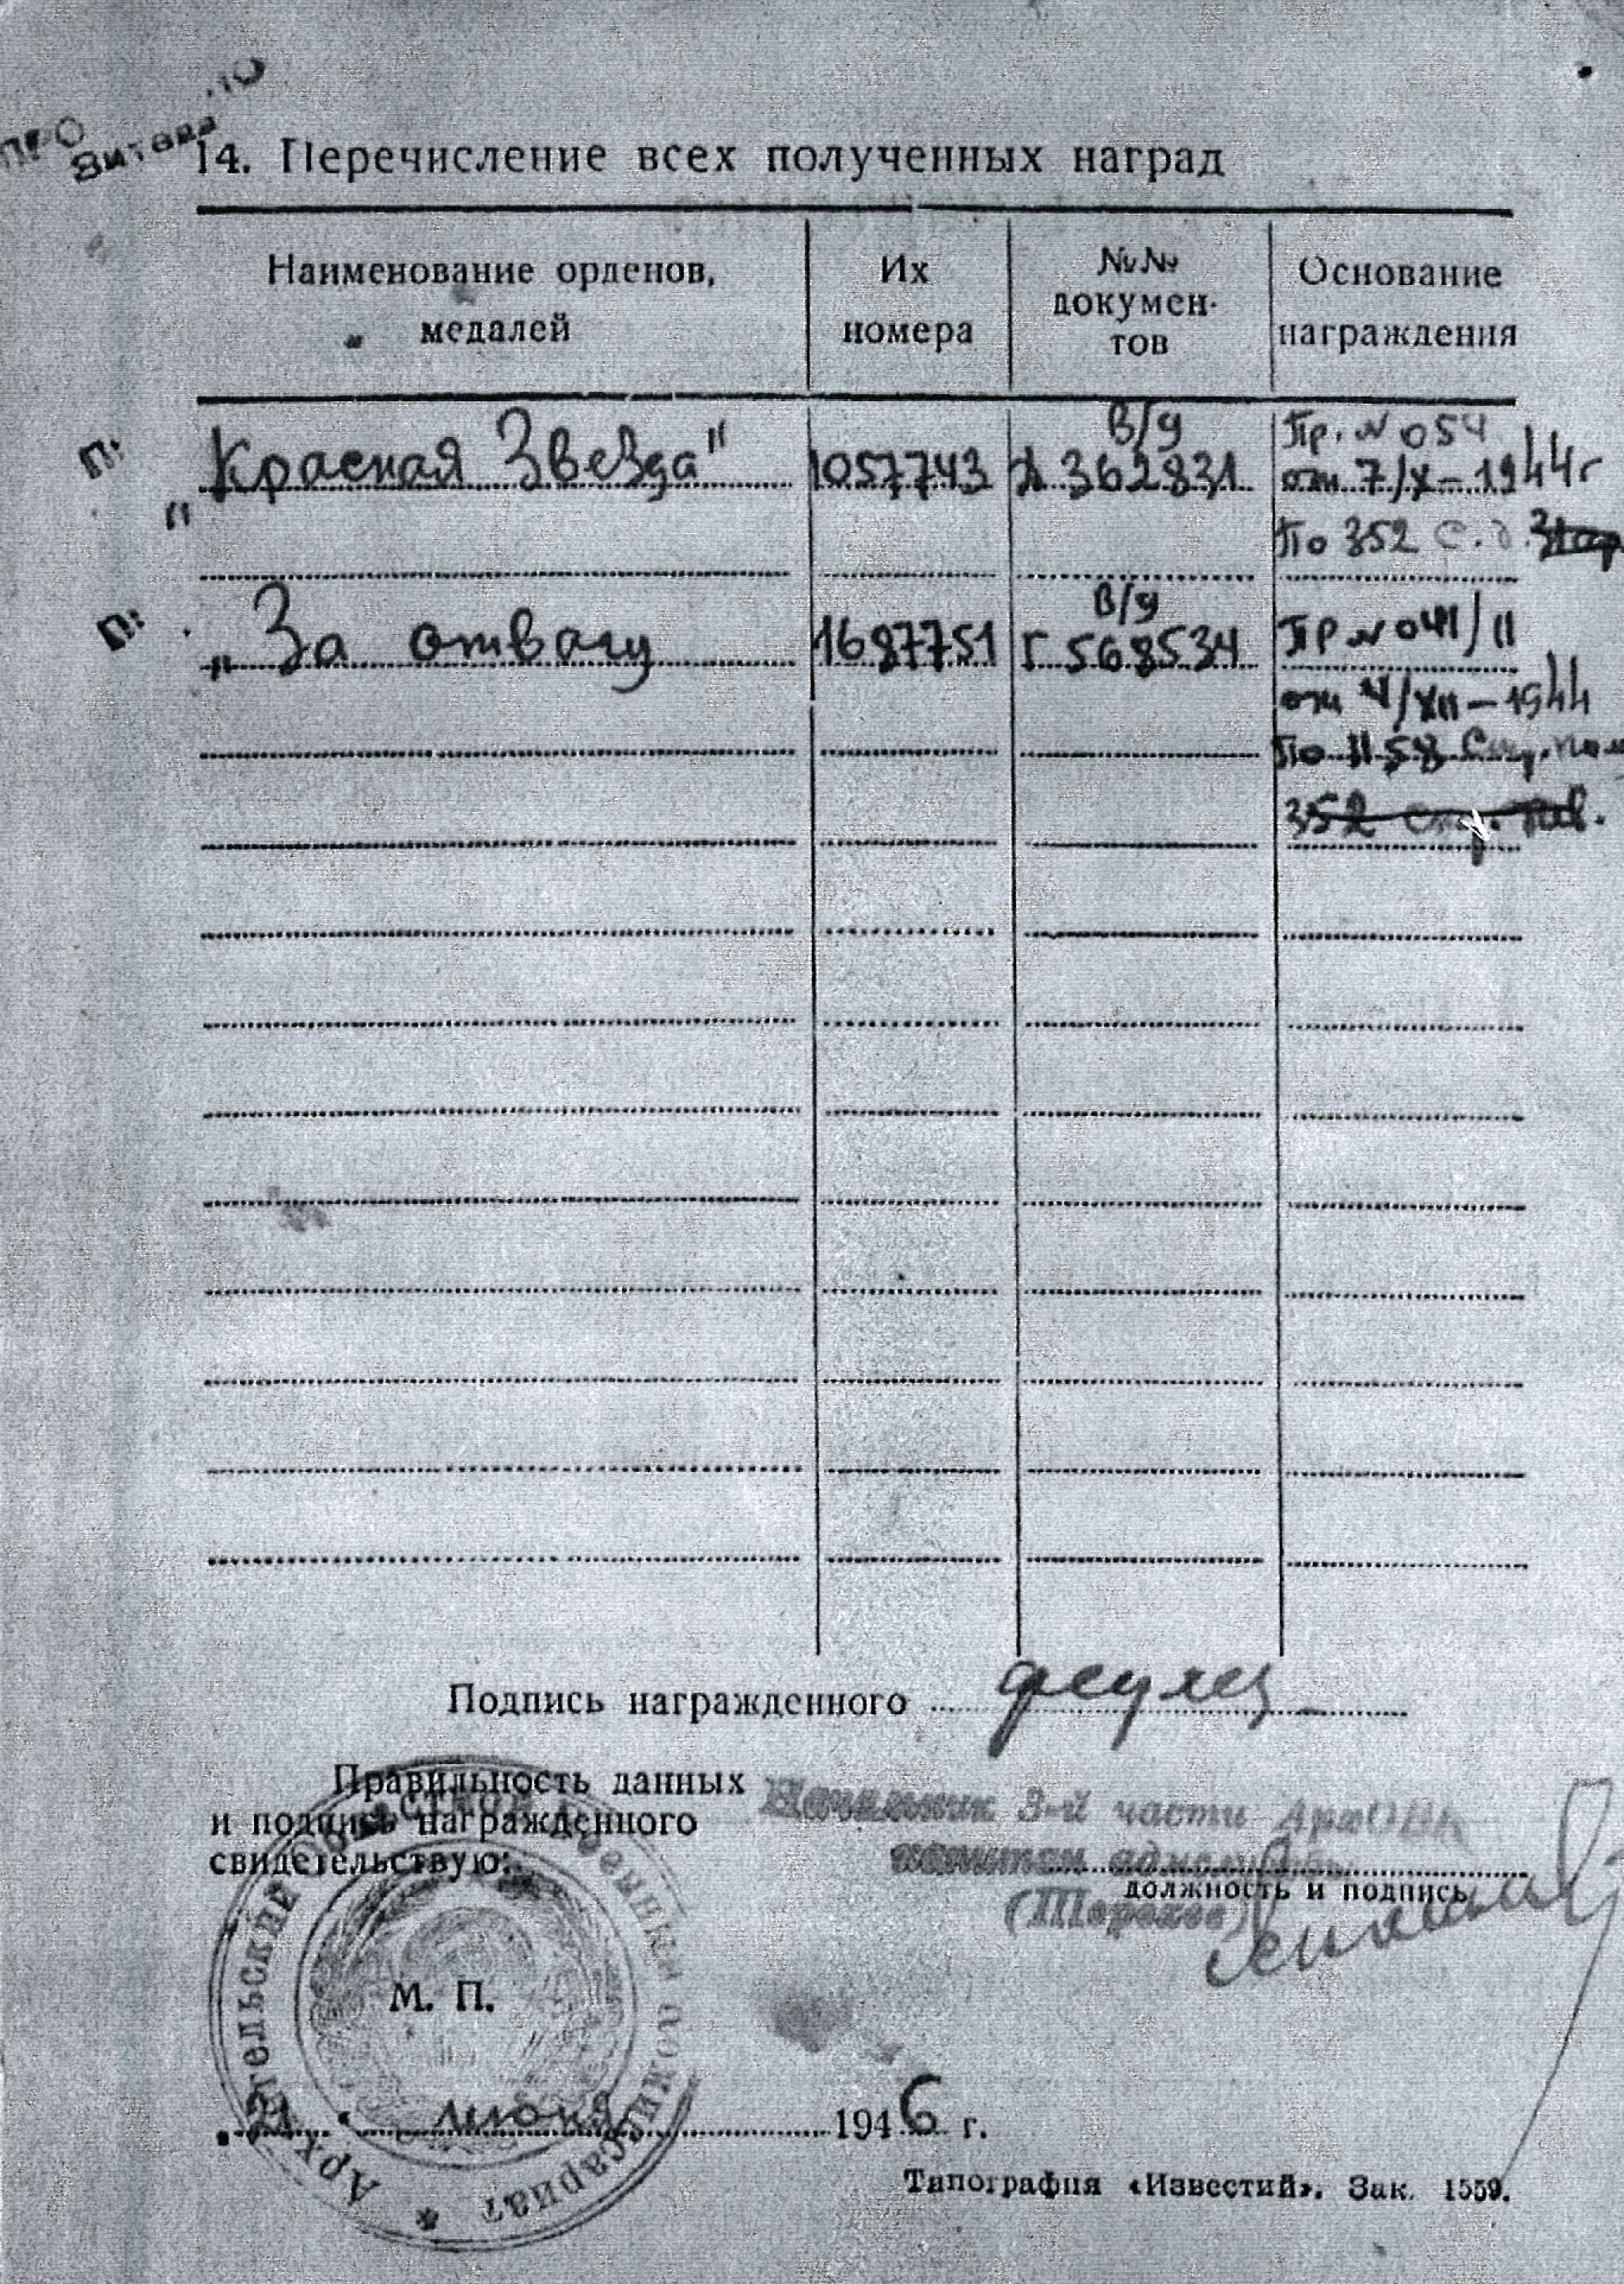 14. Перечисление всех полученных наград
Наименование орденов,
медалей
Их
номера
№№
докумен-
тов
Основание
награждения
„Красная Звезда"
1057743
В/у
362831
Пр. № 054
от 7/X – 1944 г
По 352 с.д.
„За отвагу
1687751
В/у
Г 568534
Пр № 041/
от /XII – 1944
По 1158
352
Подпись награжденного
Правильность данных
и подпись награжденного
свидетельствую:
Начальник 3-й части АрхОВК
капитан адм. службы
(Шорохов)
должность и подпись
М. П.
Архангельский Областной Военный Комиссариат
21 июня 1946 г.
Типография «Известий». Зак. 1559.